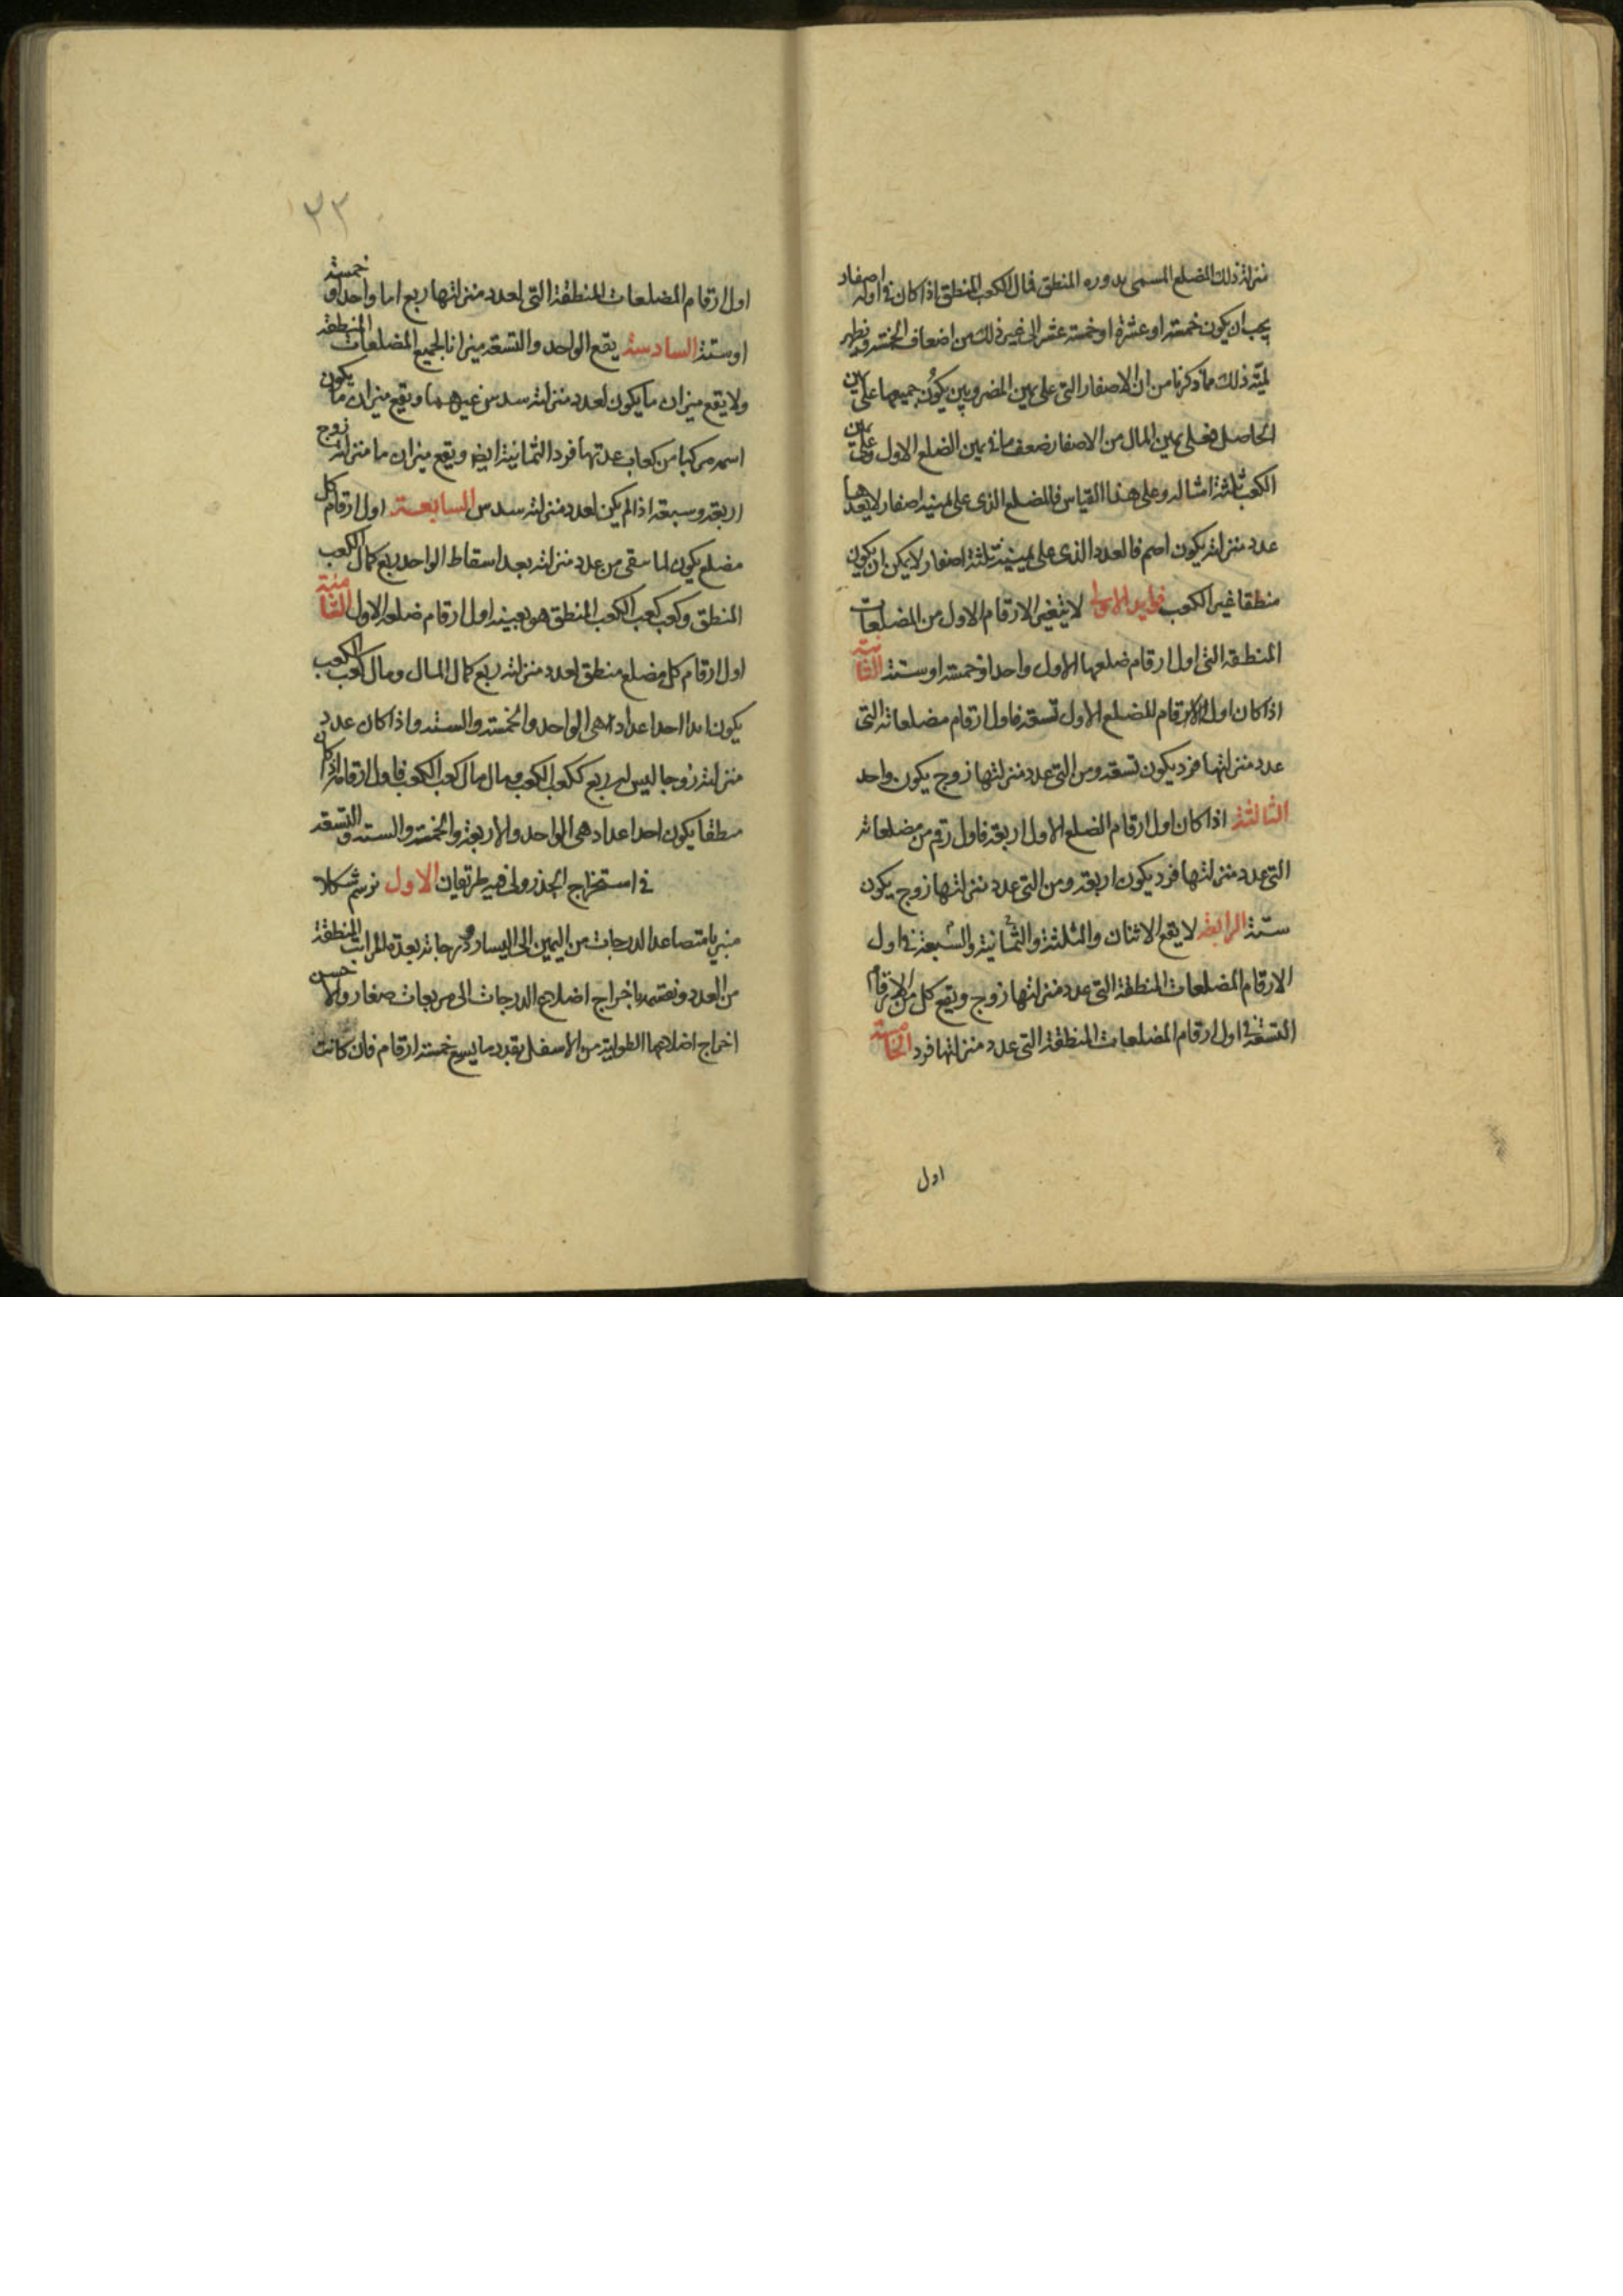 منزلة ذلك المضلع المسمى بدوره المنطق فمال الكعب المنطق اذا كان فى اوله اصفار
يجب ان يكون خمسة او عشرة او خمسة عشر الى غير ذلك من اضعاف الخمسة ويظهر
لمية ذلك مما ذكرنا من ان الاصفار التى على يمين المضروبين يكون جميعها على يمين
الحاصل فعلى يمين المال من الاصفار ضعف ما فى يمين الضلع الاول وعلى يمين
الكعب ثلثة امثاله وعلى هذا القياس فالمضلع الذى على يمينه اصفار لا يعدها
عدد منزلته يكون اصم فالعدد الذى على يمينه ثلثة اصفار لا يمكن ان يكون
منطقا غير الكعب فوايد الاولى لا يتغير الارقام الاول من المضلعات
المنطقة التى اول ارقام ضلعها الاول واحد او خمسة او ستة الثانية
اذا كان اول الارقام للمضلع الاول تسعة فاول ارقام مضلعاته التى
عدد منزلتها فرد يكون تسعة ومن التى عدد منزلتها زوج يكون واحد
الثالثة اذا كان اول ارقام الضلع الاول اربعة فاول رقم من مضلعاته
التى عدد منزلتها فرد يكون اربعة ومن التى عدد منزلتها زوج يكون
ستة الرابعة لا يقع الاثنان والثلثة والثمانية والسبعة فى اول
الارقام المضلعات المنطقة التى عدد منزلتها زوج ويقع كل من الارقام
التسعة فى اول ارقام المضلعات المنطقة التى عدد منزلتها فرد الخامسة
اول
٣٣
اول ارقام المضلعات المنطقة التى لعدد منزلتها ربع اما واحد او خمسة
او ستة السادسة يقع الواحد والتسعة ميزانا لجميع المضلعات المنطقة
ولا يقع ميزان ما يكون لعدد منزلته سدس غيرهما ويقع ميزان ما يكون
اسمه مركبا من كعاب عدتها فرد الثمانية ايضا ويقع ميزان ما منزلته زوج
اربعة وسبعة اذا لم يكن لعدد منزلته سدس السابعة اول ارقام كل
مضلع يكون لما سقى من عدد منزلته بعد اسقاط الواحد ربع كمال الكعب
المنطق وكعب كعب الكعب المنطق هو بعينه اول ارقام ضلعه الاول الثامنة
اول ارقام كل مضلع منطق لعدد منزلته ربع كمال المال ومال كعب الكعب
يكون ابدا احد اعداد هى الواحد والخمسة والستة واذا كان عدد
منزلته زوجا ليس له ربع ككعب الكعب ومال مال كعب الكعب فاول ارقامه اذا كان
منطقا يكون احد اعداد هى الواحد والاربعة والخمسة والستة والتسعة
فى استخراج الجذر ولى فيه طريقان الاول نرسم شكلا
منبريا متصاعد الدرجات من اليمين الى اليسار ودرجاته بعدة المراتب المنطقة
من العدد ونقسمه باخراج اضلاع الدرجات الى مربعات صغار والاحسن
اخراج اضلاعها الطولية من الاسفل بقدر ما يسع خمسة ارقام فان كانت